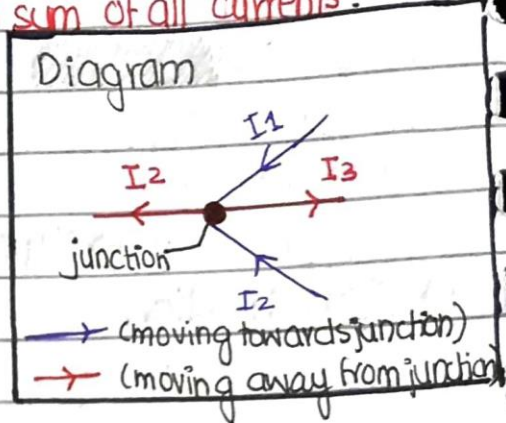 sum of all currents.
Diagram
I1
I2
I3
junction
I2
(moving towards junction)
(moving away from junction)